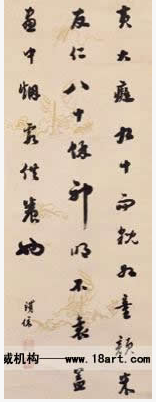 黄大癡九十而貌如童顏米
友仁八十餘神明不衰蓋
畫中烟雲供養也
威机构——www.18art.com